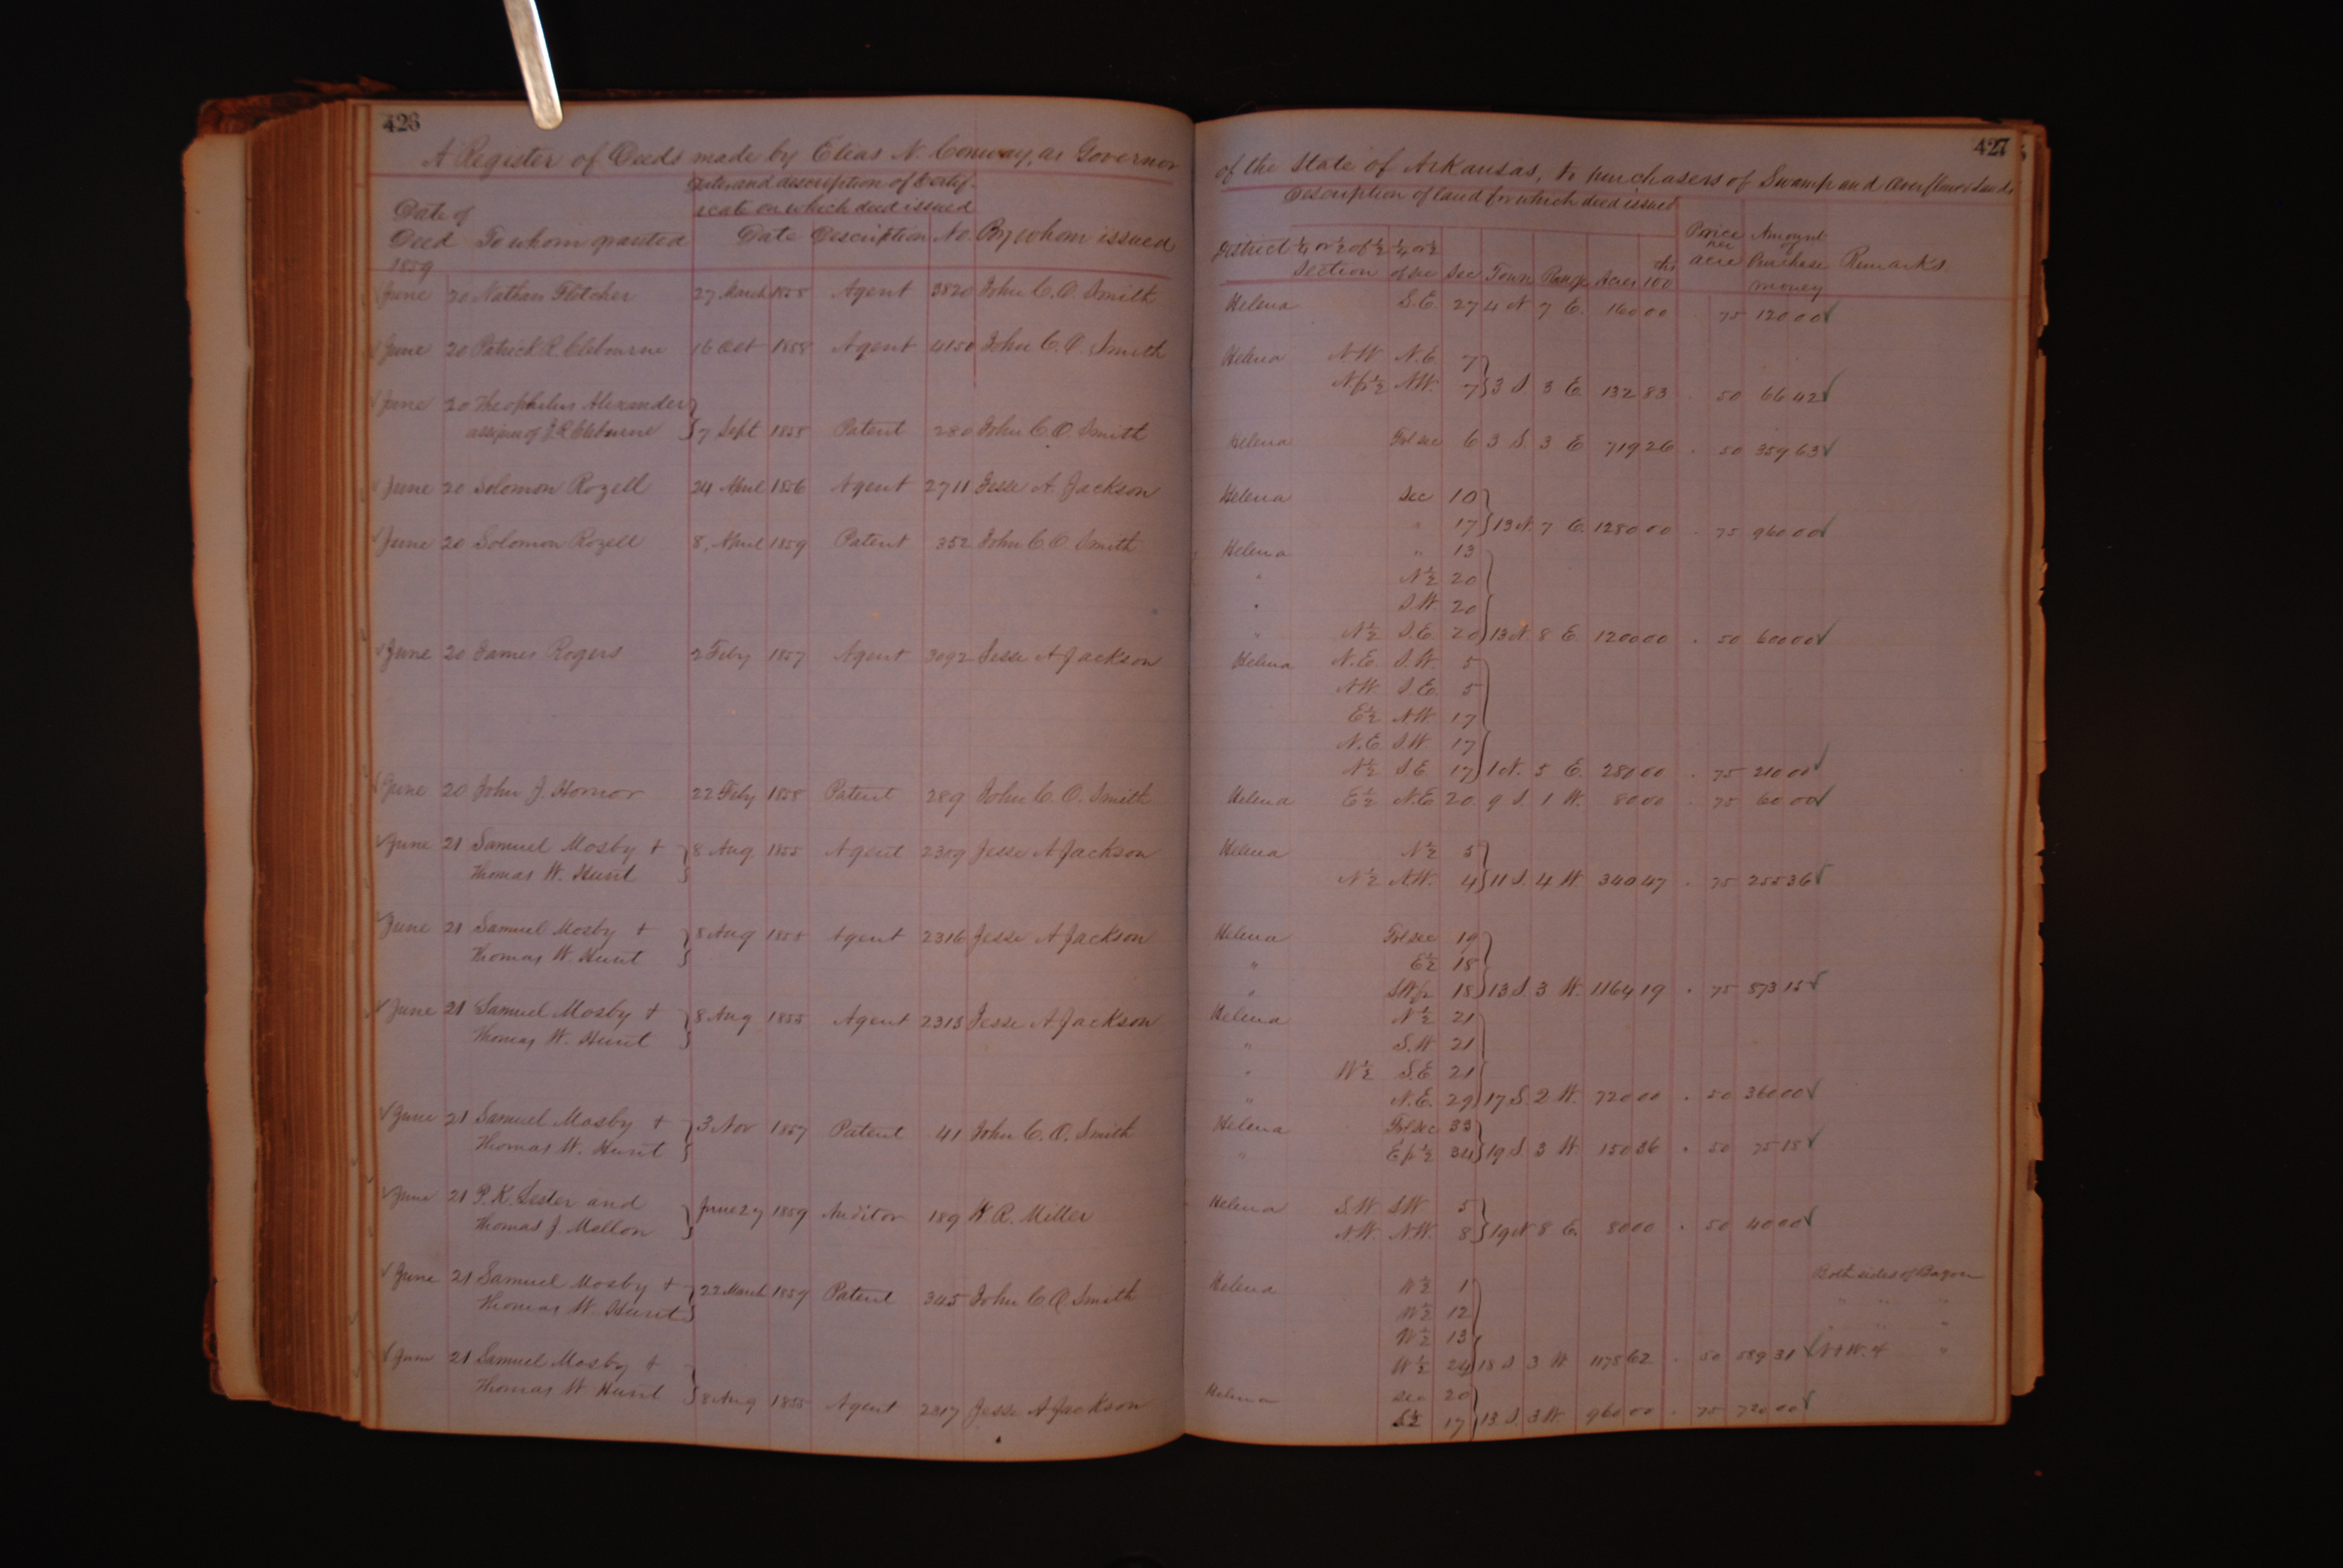 426
A Register of Deeds made by Elias N. Conway, as Governor
Date and description of Certif-
icate on which deed issued
Date of
Deed To whom granted Date Description No. By whom issued
1859
June 20 Nathan Fletcher 27 March 1858 Agent 3820 John C. O. Smith
June 20 Patrick R. Clebourne 16 Oct 1858 Agent 4150 John C. O. Smith
June 20 Theophilus Alexander
assignee of J. R. Clebourne 7 Sept 1858 Patent 280 John C O. Smith
June 20 Solomon Rozell 24 April 1856 Agent 2711 Jesse A. Jackson
June 20 Solomon Rozell 8, April 1859 Patent 352 John C O. Smith
June 20 James Rogers 2 Feby 1857 Agent 3092 Jesse A Jackson
June 20 John J. Hornor 22 Feby 1858 Patent 289 John C. O. Smith
June 21 Samuel Mosby +
Thomas W. Hunt 8 Aug 1855 Agent 2309 Jesse A Jackson
June 21 Samuel Mosby +
Thomas W. Hunt 8 Aug 1855 Agent 2316 Jesse A Jackson
June 21 Samuel Mosby +
Thomas W. Hunt 8 Aug 1855 Agent 2313 Jesse A Jackson
June 21 Samuel Mosby +
Thomas W. Hunt 3 Nov 1857 Patent 41 John C. O. Smith
June 21 P. K. Lester and
Thomas J. Mellon June 27 1859 Auditor 189 W. R. Miller
June 21 Samuel Mosby +
Thomas W. Hunt 22 March 1859 Patent 345 John C O Smith
June 21 Samuel Mosby +
Thomas W Hunt 8 Aug 1855 Agent 2317 Jesse A Jackson
427
of the State of Arkansas, to purchasers of Swamp and Overflowed Lands
Description of land for which deed issued
District ¼ or ½ of ½ ¼ or ½
Section of sec Sec Town Range Acres ths 100
Price per acre
Amount of Purchase money
Remarks
Helena S.E. 27 4 N 7 E. 160 00 . 75 120 00
Helena NW N.E. 7
N fr ½ NW. 7 3 S. 3 E 132 83 . 50 66 42
Helena Frl sec 6 3 S. 3 E 719 26 . 50 359 63
Helena Sec 10
" 17 13 N. 7 E. 1280 00 . 75 960 00
Helena " 13
" N½ 20
" S.W. 20
" N½ S.E. 20 13 N. 8 E 1200 00 . 50 600 00
Helena N.E. S.W. 5
NW. S.E. 5
E½ N.W. 17
N.E. S.W 17
N½ S.E. 17 1 N. 5 E. 280 00 . 75 210 00
Helena E½ N.E 20. 9 S. 1 W. 80 00 . 75 60 00
Helena N½ 5
N½ NW. 4 11 S. 4 W 340 47 . 75 255 36
Helena Frl sec 19
" E½ 18
" SW fr 18 13 S. 3 W. 1164 19 . 75 873 15
Helena N½ 21
" S.W 21
" W½ S.E 21
" N.E. 29 17 S. 2 W. 720 00 . 50 360 00
Helena Frl sec 33
" E fr ½ 34 19 S. 3 W. 150 36 . 50 75 18
Helena S.W SW. 5
NW. NW. 8 19 N 8 E. 80 00 . 50 40 00
Both sides of Bayou
Helena W½ 1
W½ 12 " " "
W½ 13 " " "
W½ 24 18 S 3 W 1178 62 . 50 589 31 "
Helena Sec 20
E½ 17 13 S. 3 W. 960 00 . 75 720 00